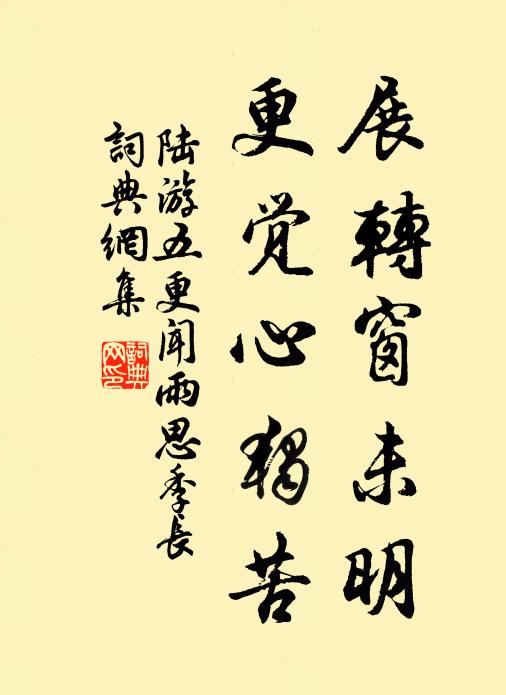 展轉窗未明
更觉心獨苦
陆游五更闻雨思季長
詞典網集
詞典
网印